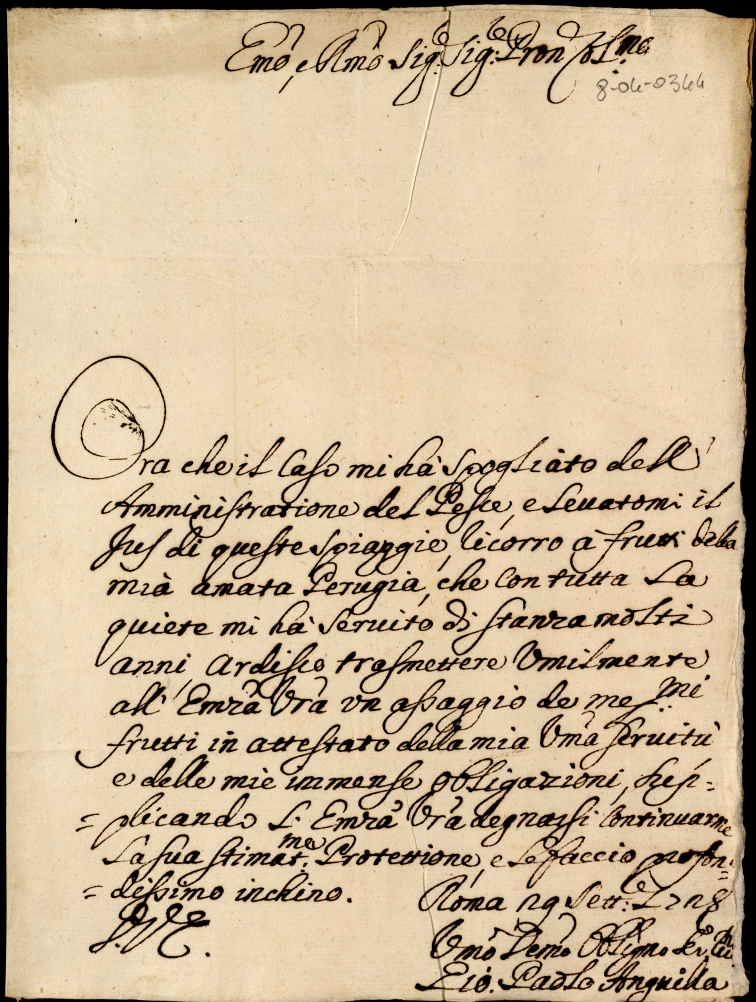 Emo, e Rmo Sig. Sig. Pron Colmo
8-04-0344
Ora che il Caso mi hà spogliato dell'
Amministratione del Pesce, e levatomi il
Jus di queste spiaggie, ricorro à frutti della
mià amata Perugia, che con tutta la
quiete mi hà servito di stanza molti
anni, ardisco trasmettere Umilmente
all' Emza Vra un assaggio de mesmi
frutti in attestato della mia Uma servitù
e delle mie immense obligazioni, sup=
=plicando l' Emza Vra degnarsi continuarme
la sua stimatma Protettione, e le faccio profon=
=dissimo inchino.
Roma 29 Sett.
V. E.
Umo Demo Obligmo
Gio. Paolo Anguilla